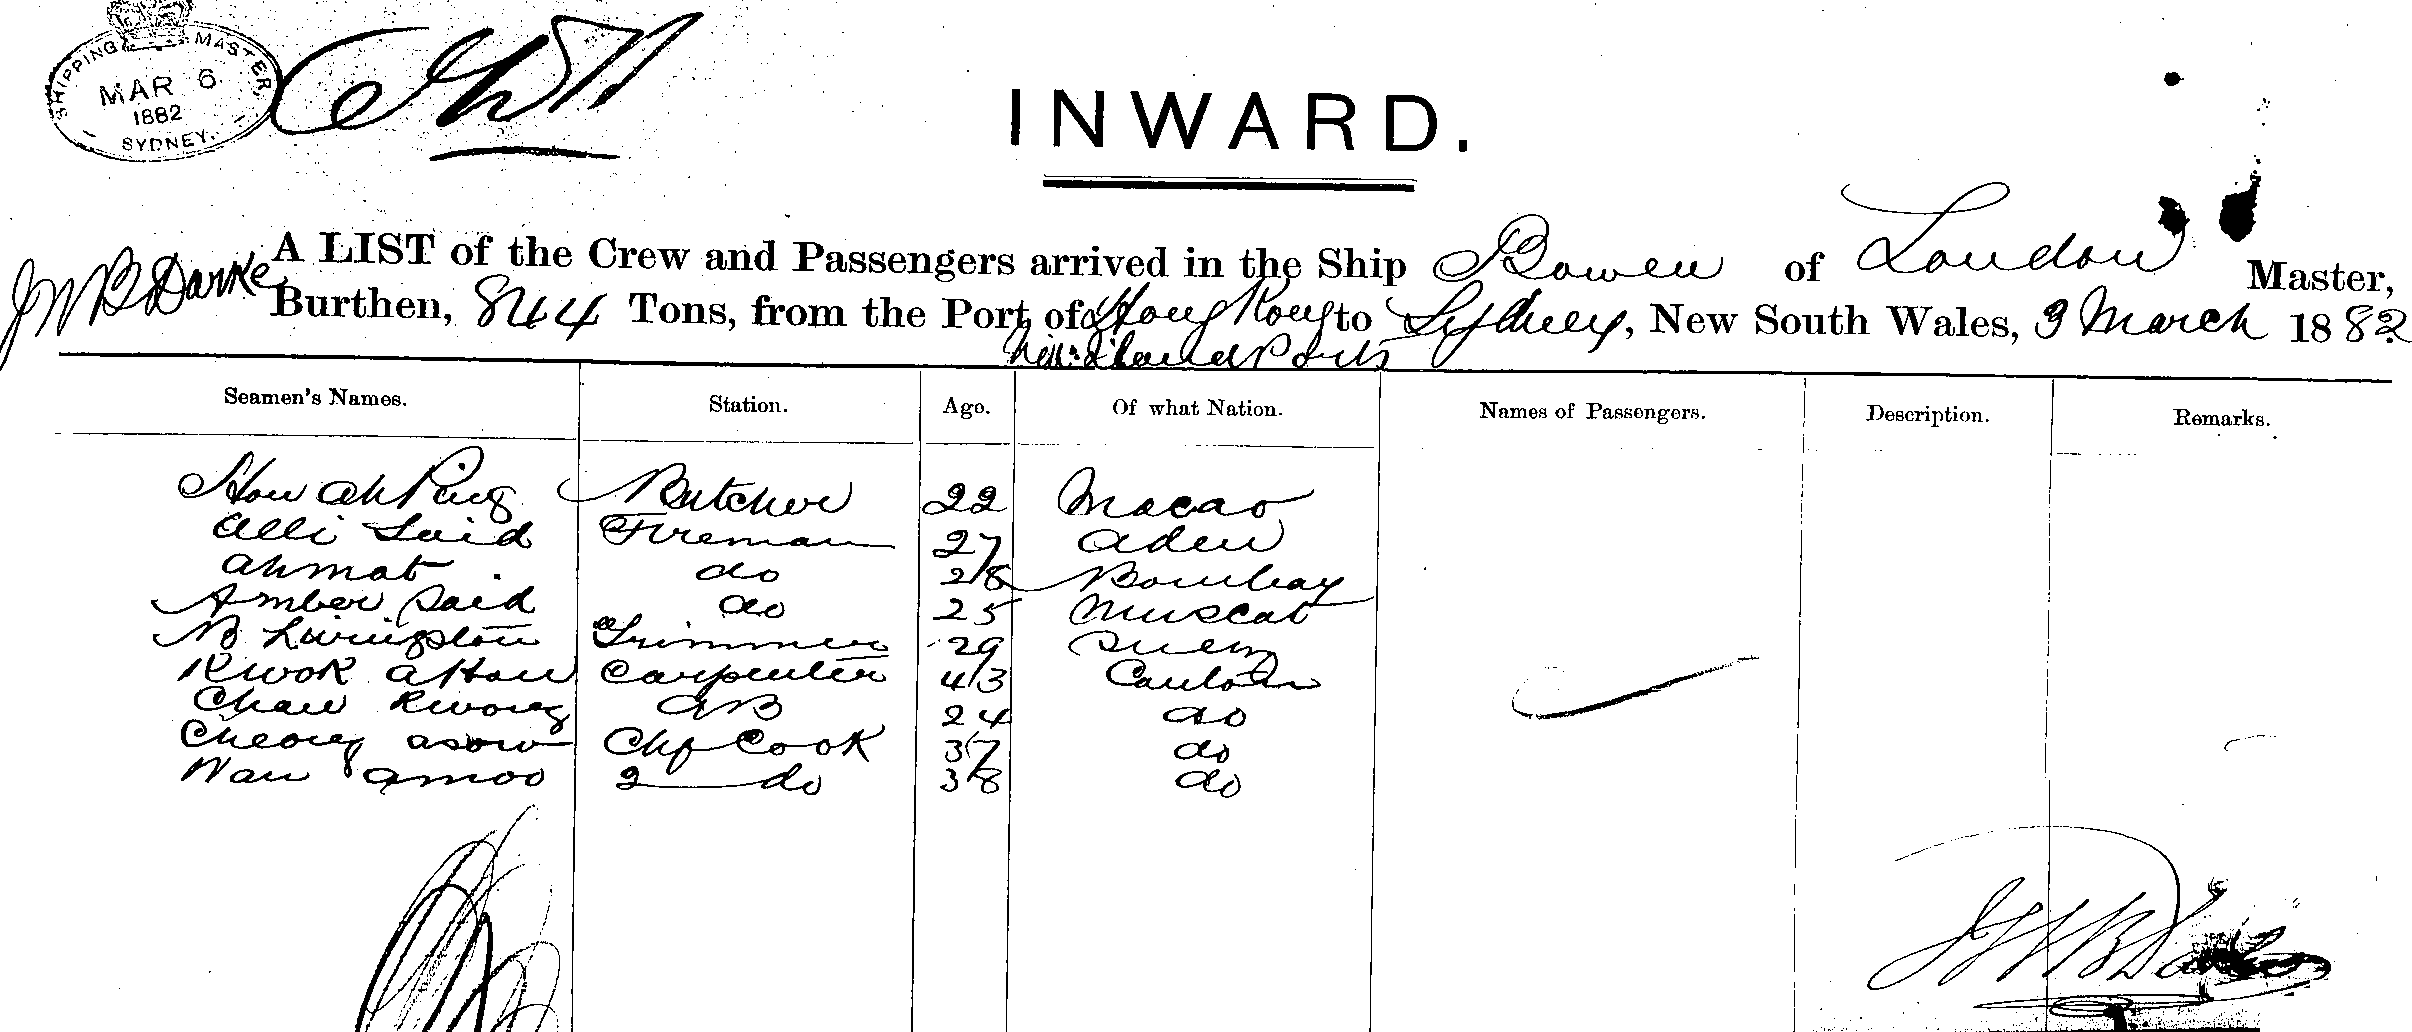 SHIPPING MASTER,
MAR 6
1882
SYDNEY.
INWARD.
A LIST of the Crew and Passengers arrived in the Ship Bowen of London Master,
J W B Darke Burthen, 844 Tons, from the Port of Hong Kong to Sydney, New South Wales, 3 March 1882
Seamen's Names. Station. Age. Of what Nation. Names of Passengers. Description. Remarks.
How Ah Ping Butcher 22 Macao
Alli Said Fireman 27 Aden
Ahmat do 28 Bombay
Amber Said do 25 Muscat
N Livingston Trimmer 29 Suez
Kwok Ahow Carpenter 43 Canton
Chaw Kwong AB 24 do
Cheong asow Chf Cook 37 do
Wan amoo 2 do 38 do
J W B Darke